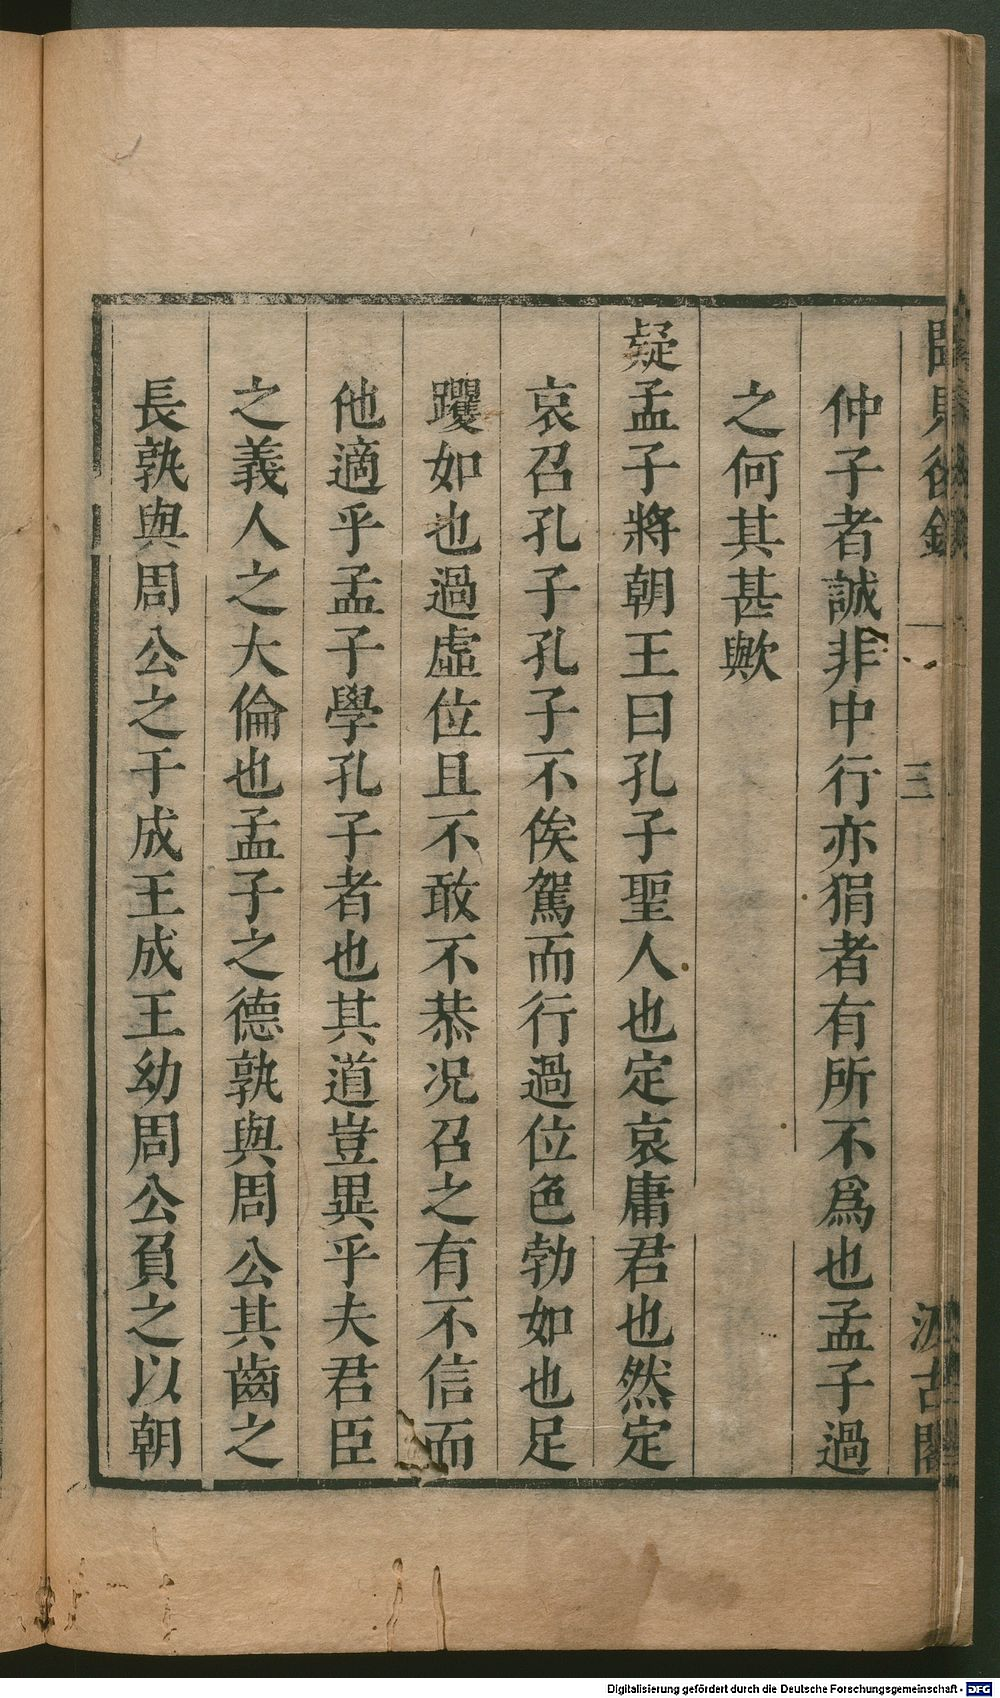 仲子者誠非中行亦狷者有所不爲也孟子過
之何其甚歟
疑孟子將朝王曰孔子聖人也定哀庸君也然定
哀召孔子孔子不俟駕而行過位色勃如也足
躩如也過虛位且不敢不恭況召之有不信而
他適乎孟子學孔子者也其道豈異乎夫君臣
之義人之大倫也孟子之德孰與周公其齒之
長孰與周公之于成王成王幼周公負之以朝
三
汲古閣
Digitalisierung gefördert durch die Deutsche Forschungsgemeinschaft - DFG